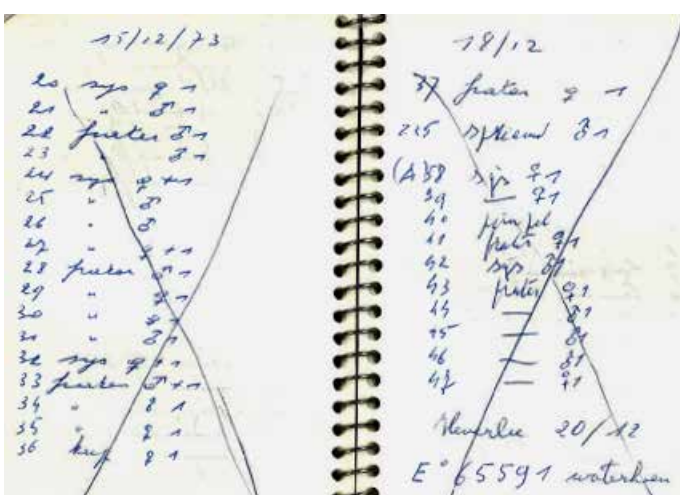 15/12/73
20 sys ♀ 1
21 " ♂ 1
22 frater ♂ 1
23 " ♂ 1
24 sys ♀ +1
25 " ♂
26 " ♂
27 " ♀ +1
28 frater ♂ 1
29 " ♀ 1
30 " ♀ 1
31 " ♂ 1
32 sys ♀ +1
33 frater ♂ +1
34 " ♀ 1
35 " ♀ 1
36 kup ♀ 1
18/12
37 frater ♀ 1
225 ♂ 1
(A) 38 sys ♀ 1
39 — ♀ 1
40
41 frater ♀ 1
42 sys ♂ 1
43 frater ♀ 1
44 — ♂ 1
45 — ♂ 1
46 — ♂ 1
47 — ♀ 1
Heverlee 20/12
E° 65591 waterhoen